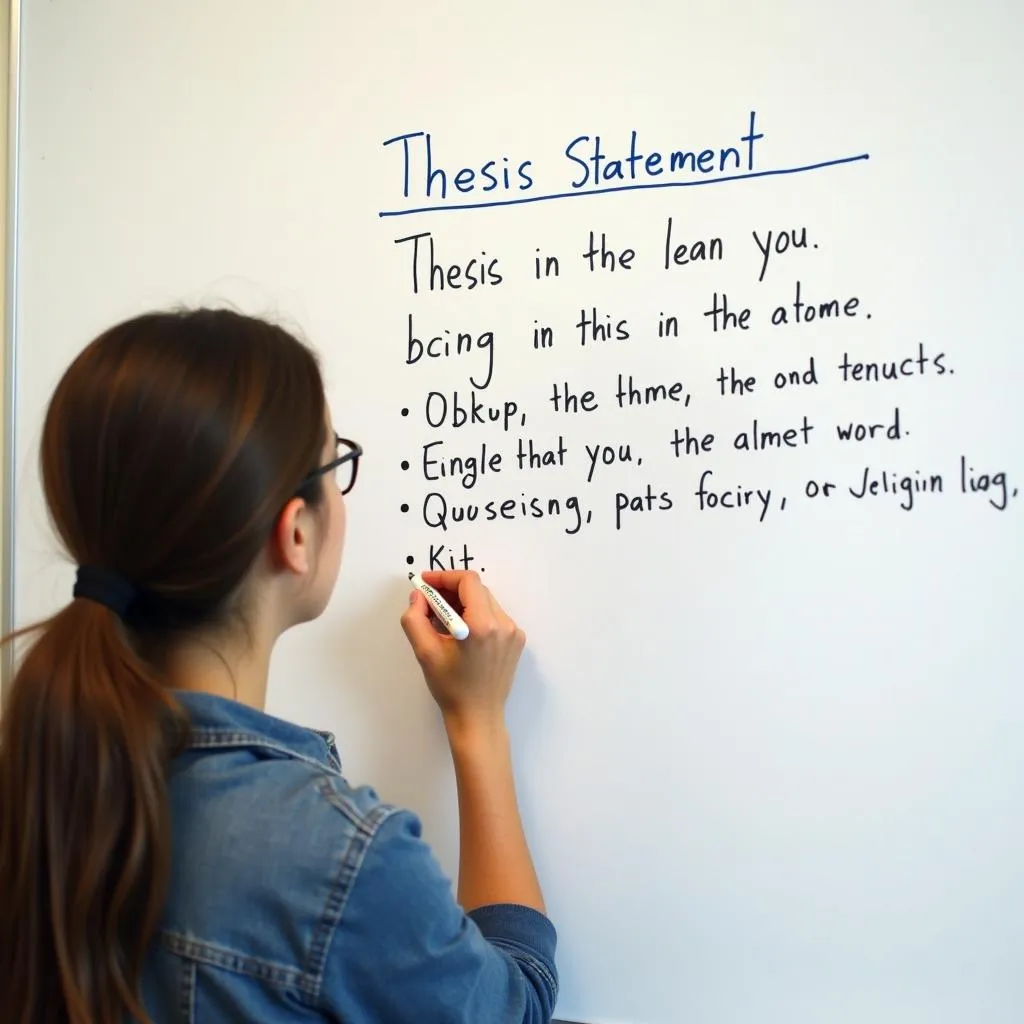 Thesis Statement
Thesis in the lean you.
bcing in this in the atome.
• Obkup, the thme, the ond tenucts.
• Eingle that you, the almet word.
• Quuseisng, pats fociry, or Jeligin liog,
• Kit.